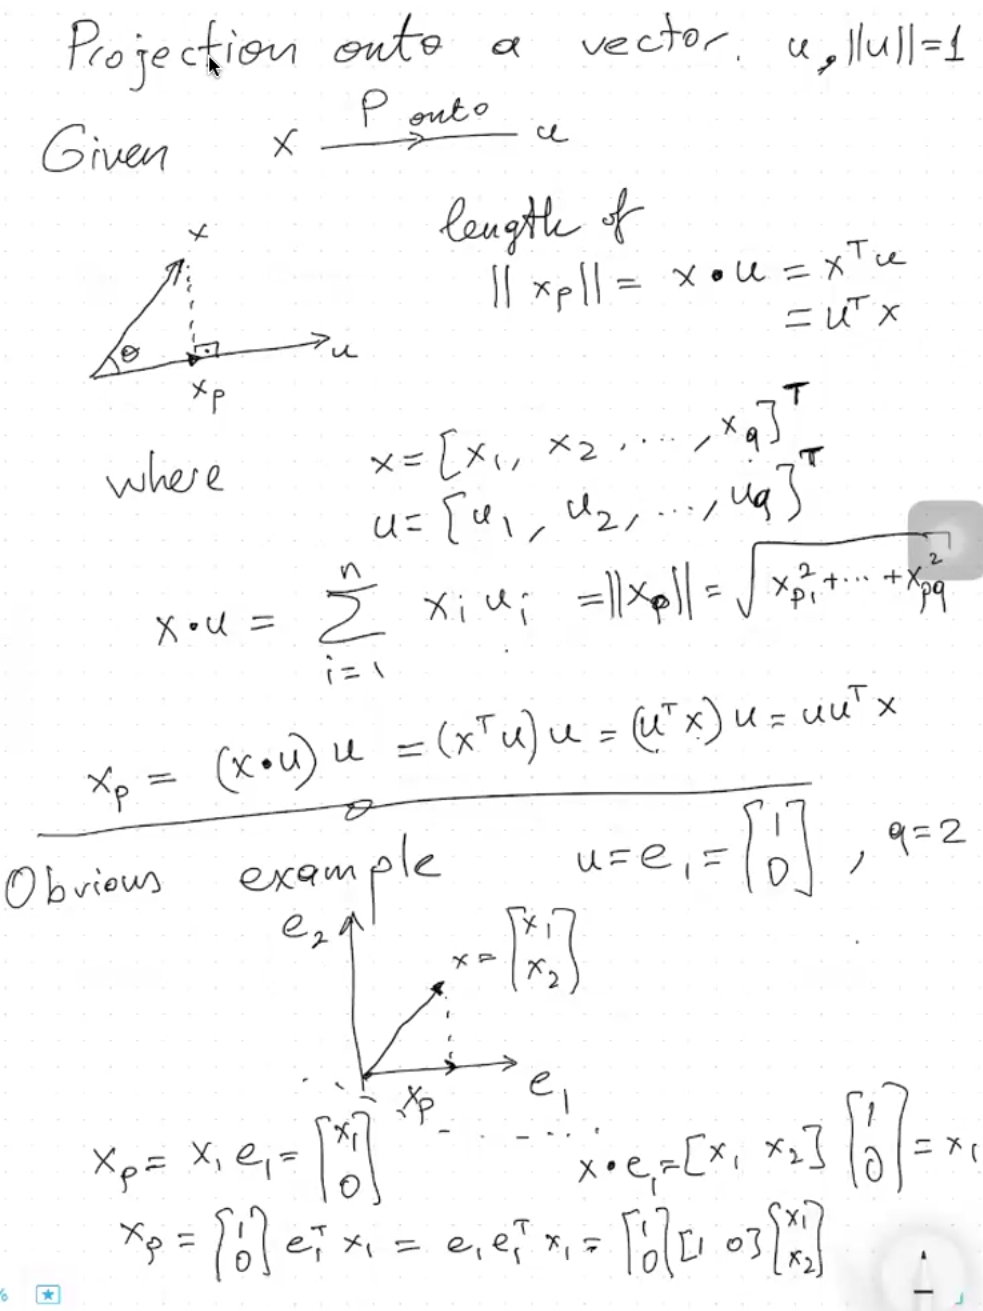 Projection onto a vector. u, ||u||=1
Given x P onto → u
length of
x
||x_p|| = x • u = x^T u
= u^T x
θ
u
x_p
where x = [x_1, x_2 ....., x_q]^T
u = [u_1, u_2, ..., u_q]^T
x•u = ∑_{i=1}^{n} x_i u_i = ||x_p|| = √(x_{p1}^2 + ... + x_{pq}^2)
x_p = (x•u) u = (x^T u) u = (u^T x) u = u u^T x
Obvious example u = e_1 = [1 0] , q=2
e_2
x = [x_1 x_2]
e_1
x_p
x_p = x_1 e_1 = [x_1 0] x•e_1 = [x_1 x_2] [1 0] = x_1
x_p = [1 0] e_1^T x_1 = e_1 e_1^T x_1 = [1 0] [1 0] [x_1 x_2]
%